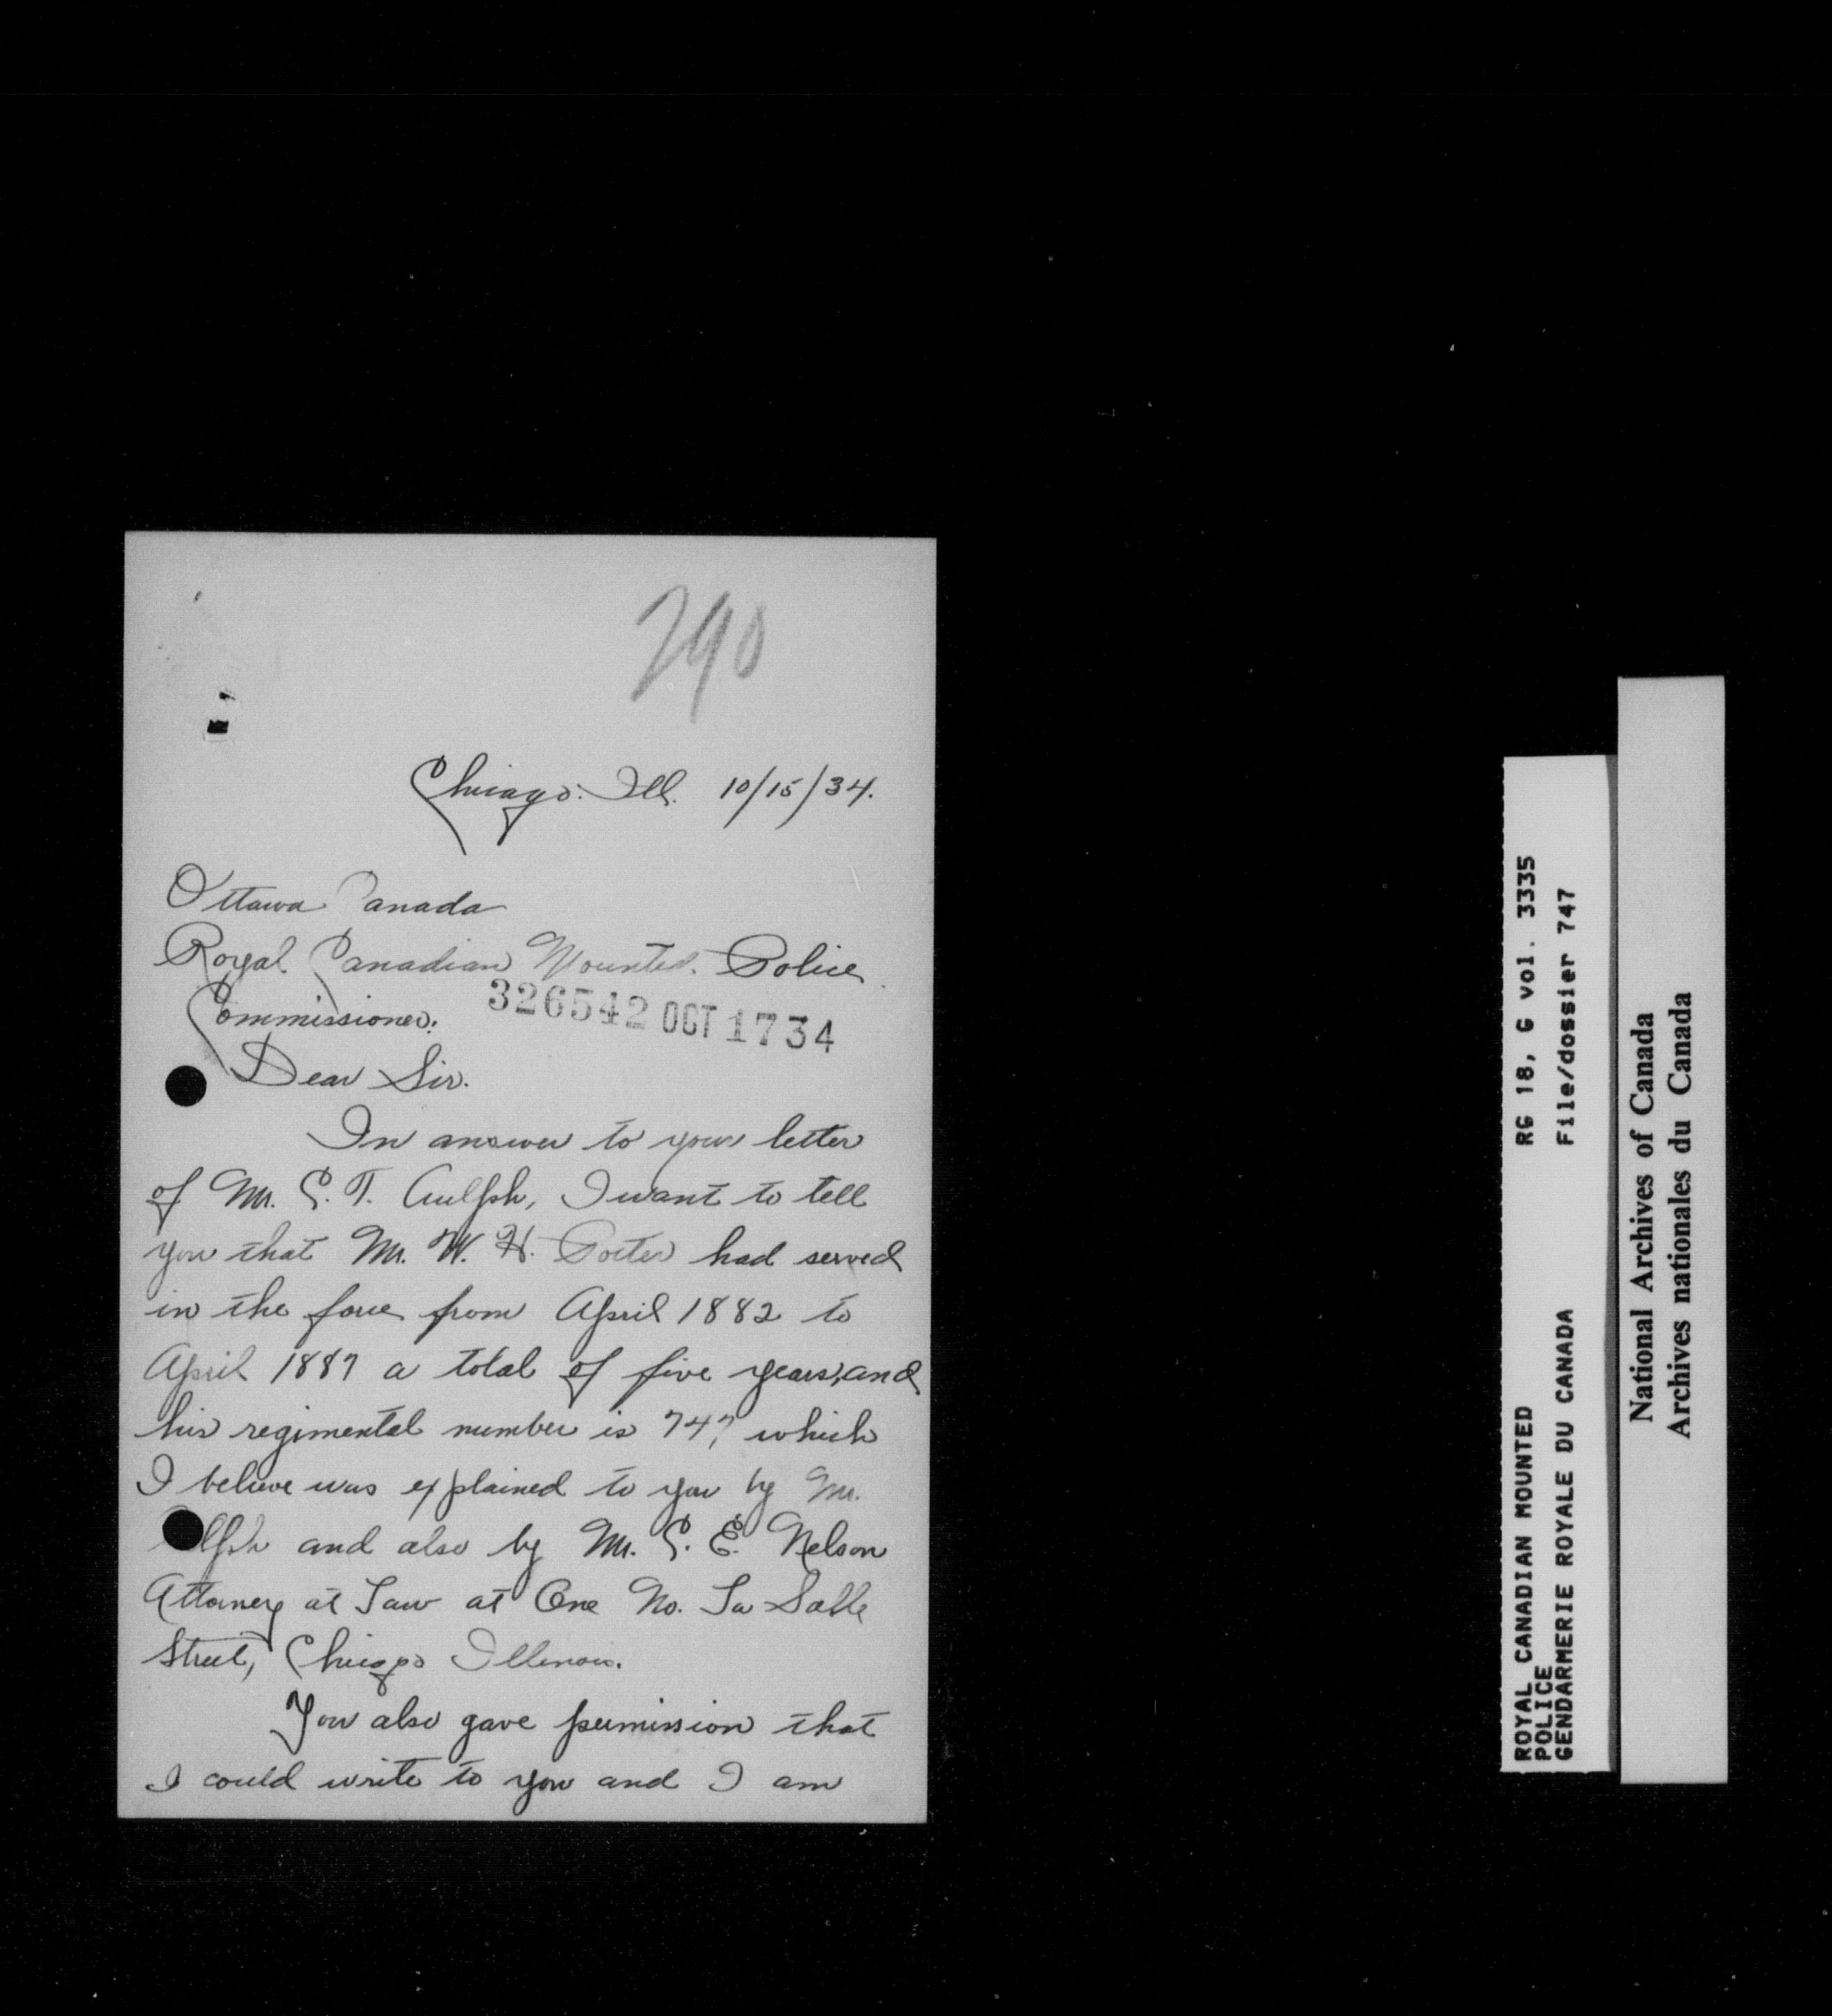 290
Chicago. Ill. 10/15/34.
Ottawa Canada
Royal Canadian Mounted Police
Commissioner.
326542 OCT 17 34
Dear Sir.
In answer to your letter
of Mr. C. T. I want to tell
you that Mr. W. H. Porter had served
in the force from April 1882 to
April 1887 a total of five years, and
his regimental number is 747, which
I believe was explained to you by Mr.
and also by Mr. C. E. Nelson
Attorney at Law at One No. La Salle
Street, Chicago Illinois.
You also gave permission that
I could write to you and I am
ROYAL CANADIAN MOUNTED POLICE
GENDARMERIE ROYALE DU CANADA
RG 18, G vol. 3335
File/dossier 747
National Archives of Canada
Archives nationales du Canada